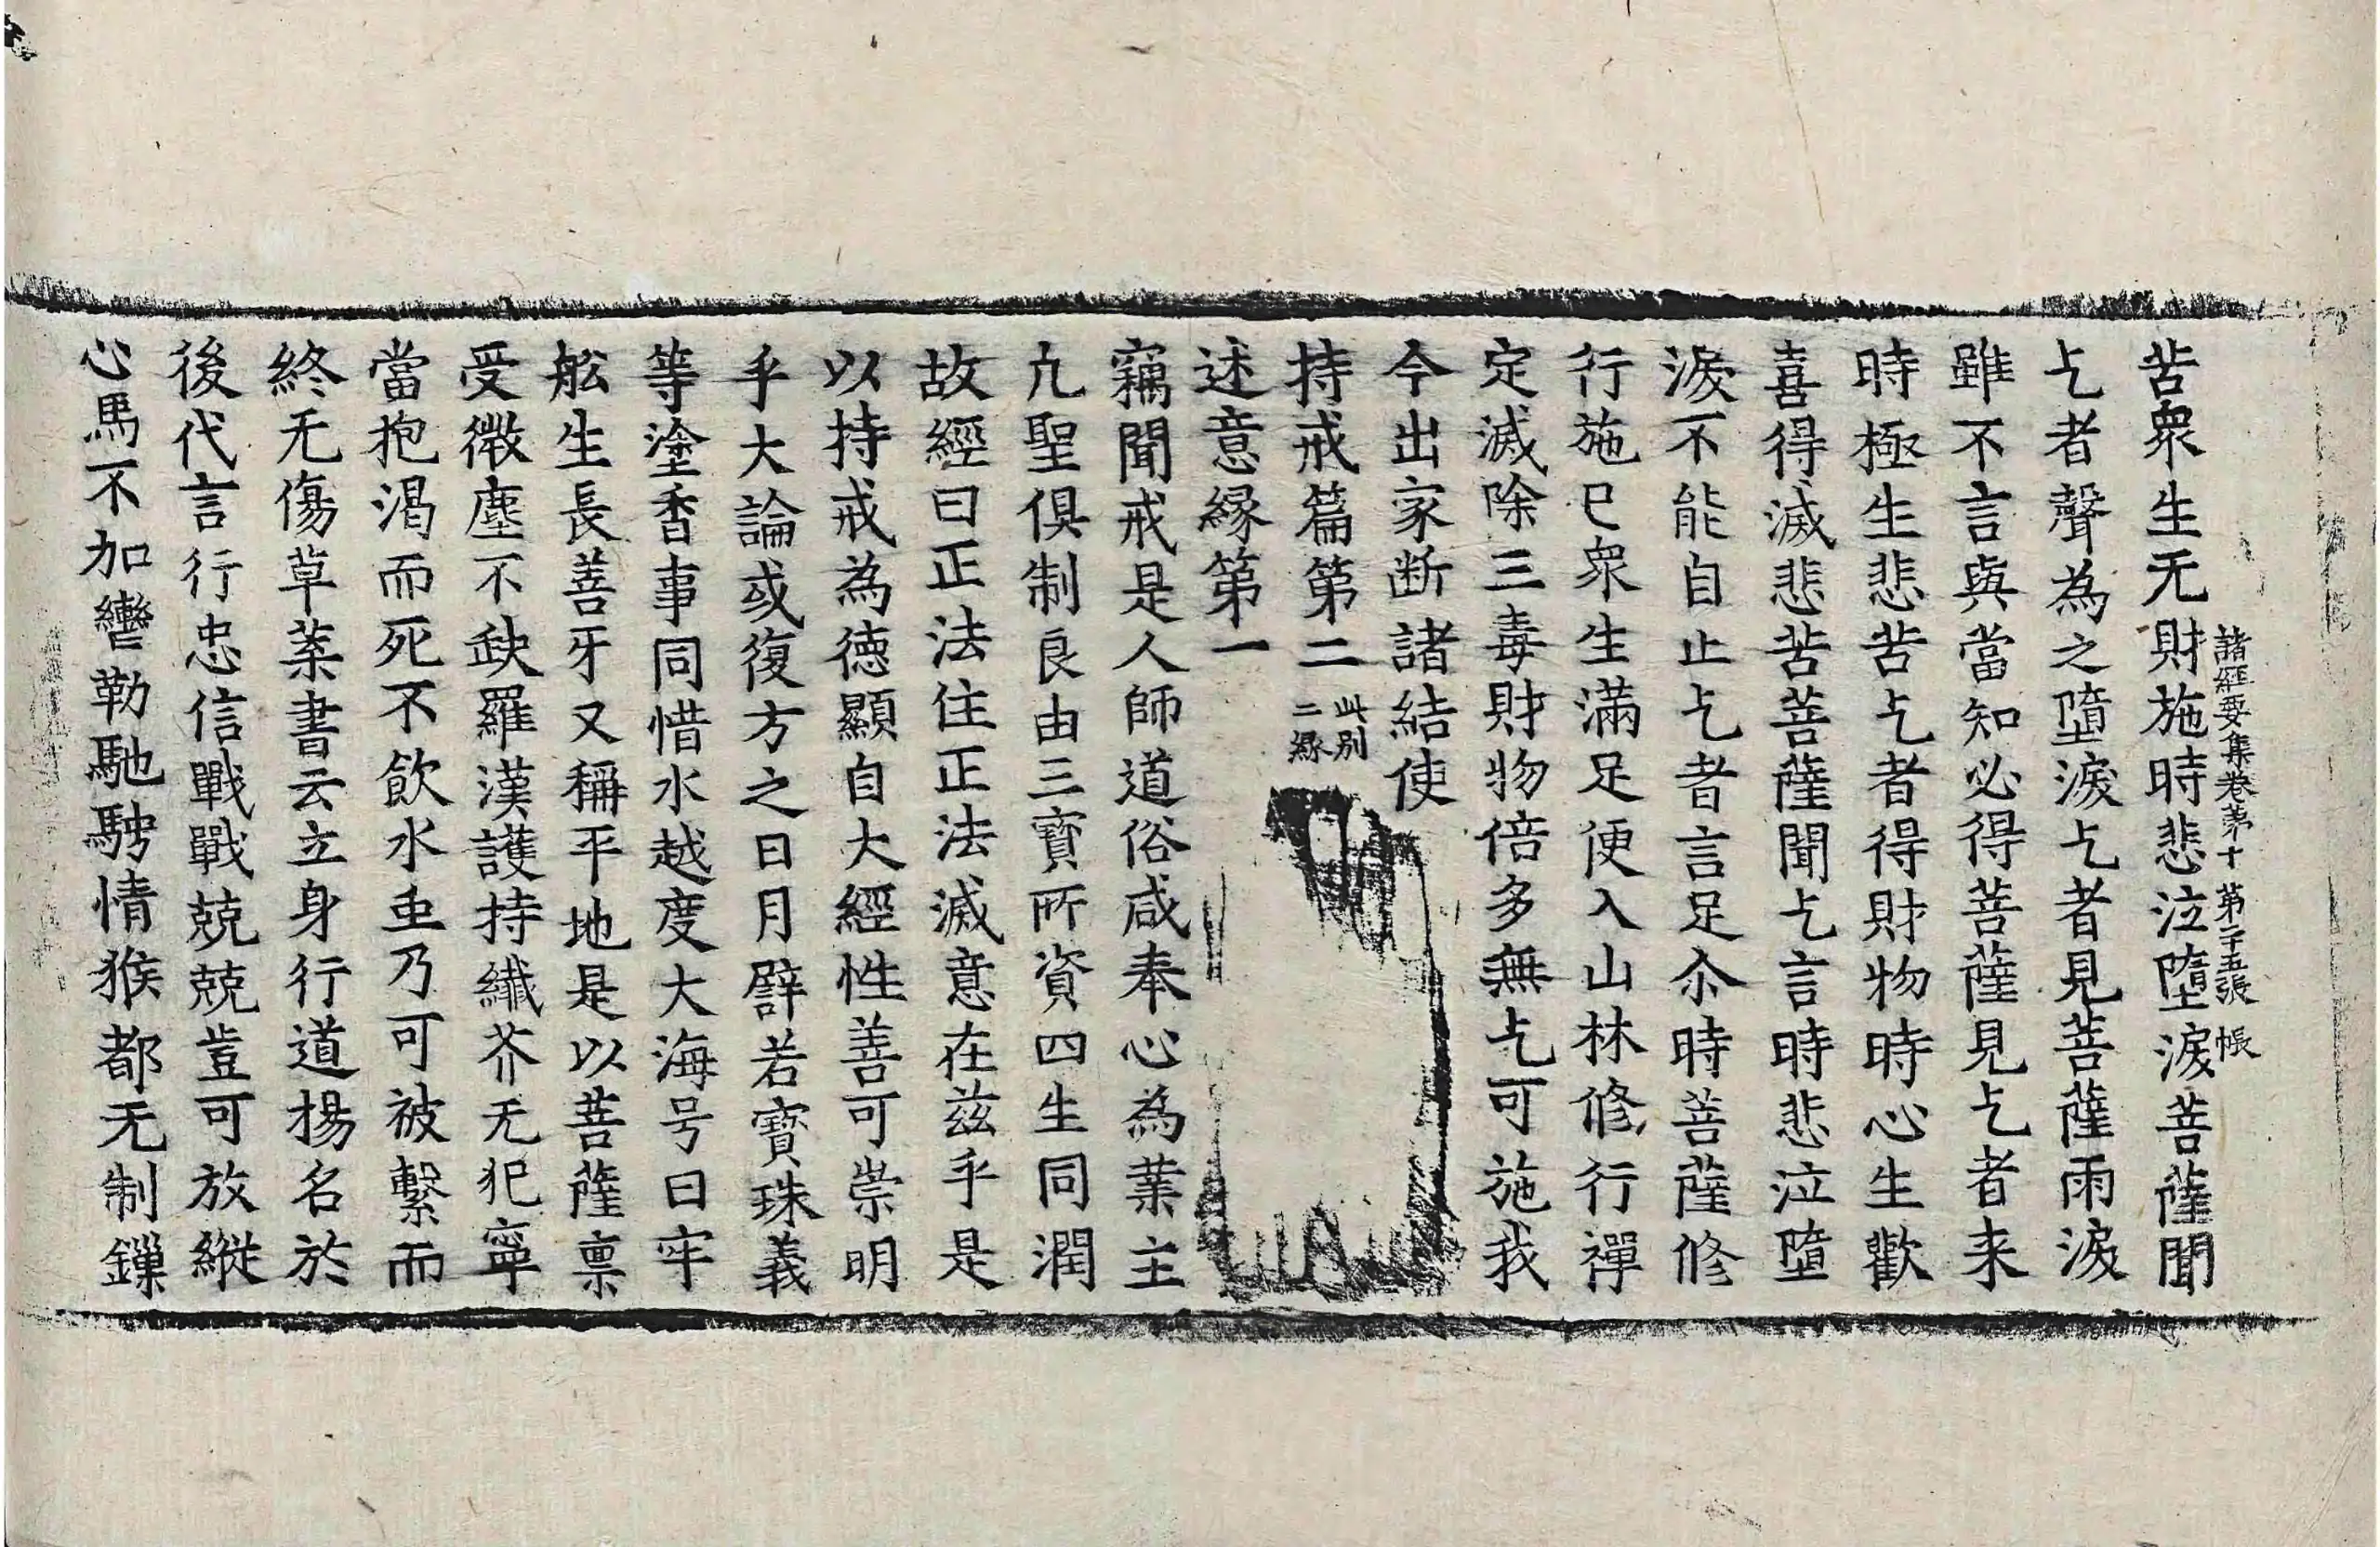 諸經要集卷第十 第二十五張 帳
苦衆生无財施時悲泣墮淚菩薩聞
乞者聲為之墮淚乞者見菩薩雨淚
雖不言與當知必得菩薩見乞者来
時極生悲苦乞者得財物時心生歡
喜得滅悲苦菩薩聞乞言時悲泣墮
淚不能自止乞者言足尒時菩薩修
行施已衆生滿足便入山林修行禪
定滅除三毒財物倍多無乞可施我
今出家断諸結使
持戒篇第二 此別二縁
述意縁第一
竊聞戒是人師道俗咸奉心為業主
凢聖俱制良由三寶所資四生同潤
故經曰正法住正法滅意在兹乎是
以持戒為徳顯自大經性善可崇明
乎大論或復方之日月譬若寶珠義
等塗香事同惜水越度大海号曰牢
舩生長善牙又稱平地是以菩薩禀
受微塵不缺羅漢護持纖芥无犯寧
當抱渴而死不飲水䖝乃可被繫而
終无傷草葉書云立身行道揚名於
後代言行忠信戰戰兢兢豈可放縱
心馬不加轡勒馳騁情猴都无制鏁